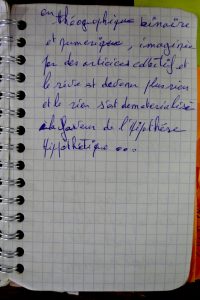 en théographique binaire
et numerique, imaginée
par des articices collectif et
le rêve est devenu plus rien
et le rien s'est dematérialisé
à la faveur de l'Hipthèse
Hippthétique ...